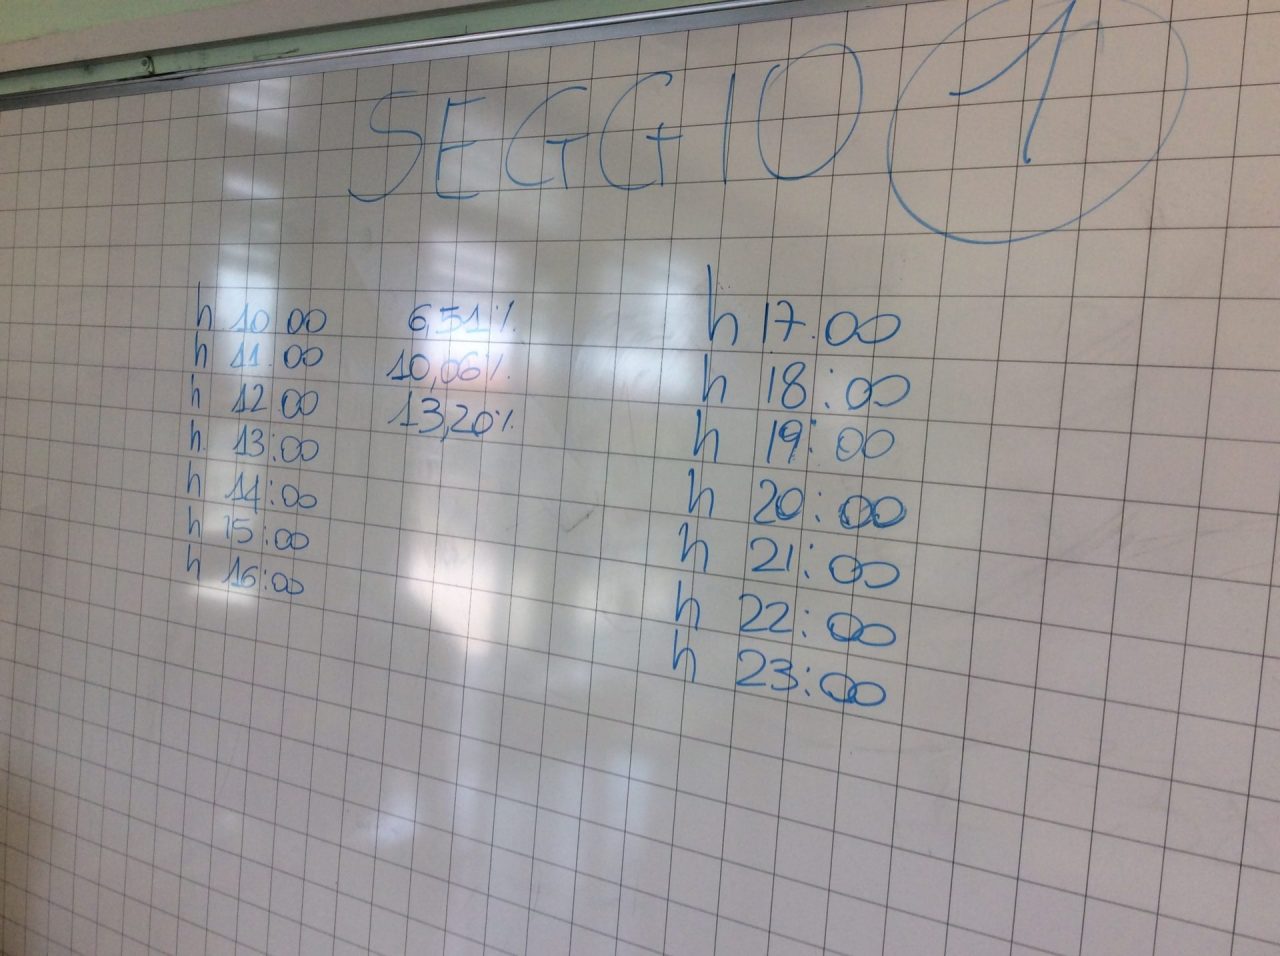 SEGGIO 1
h 10 00 6,51%
h 11.00 10,06%
h 12 00 13,20%
h. 13:00
h 14:00
h 15:00
h 16:00
h 17.00
h 18:00
h 19:00
h 20:00
h 21:00
h 22:00
h 23:00